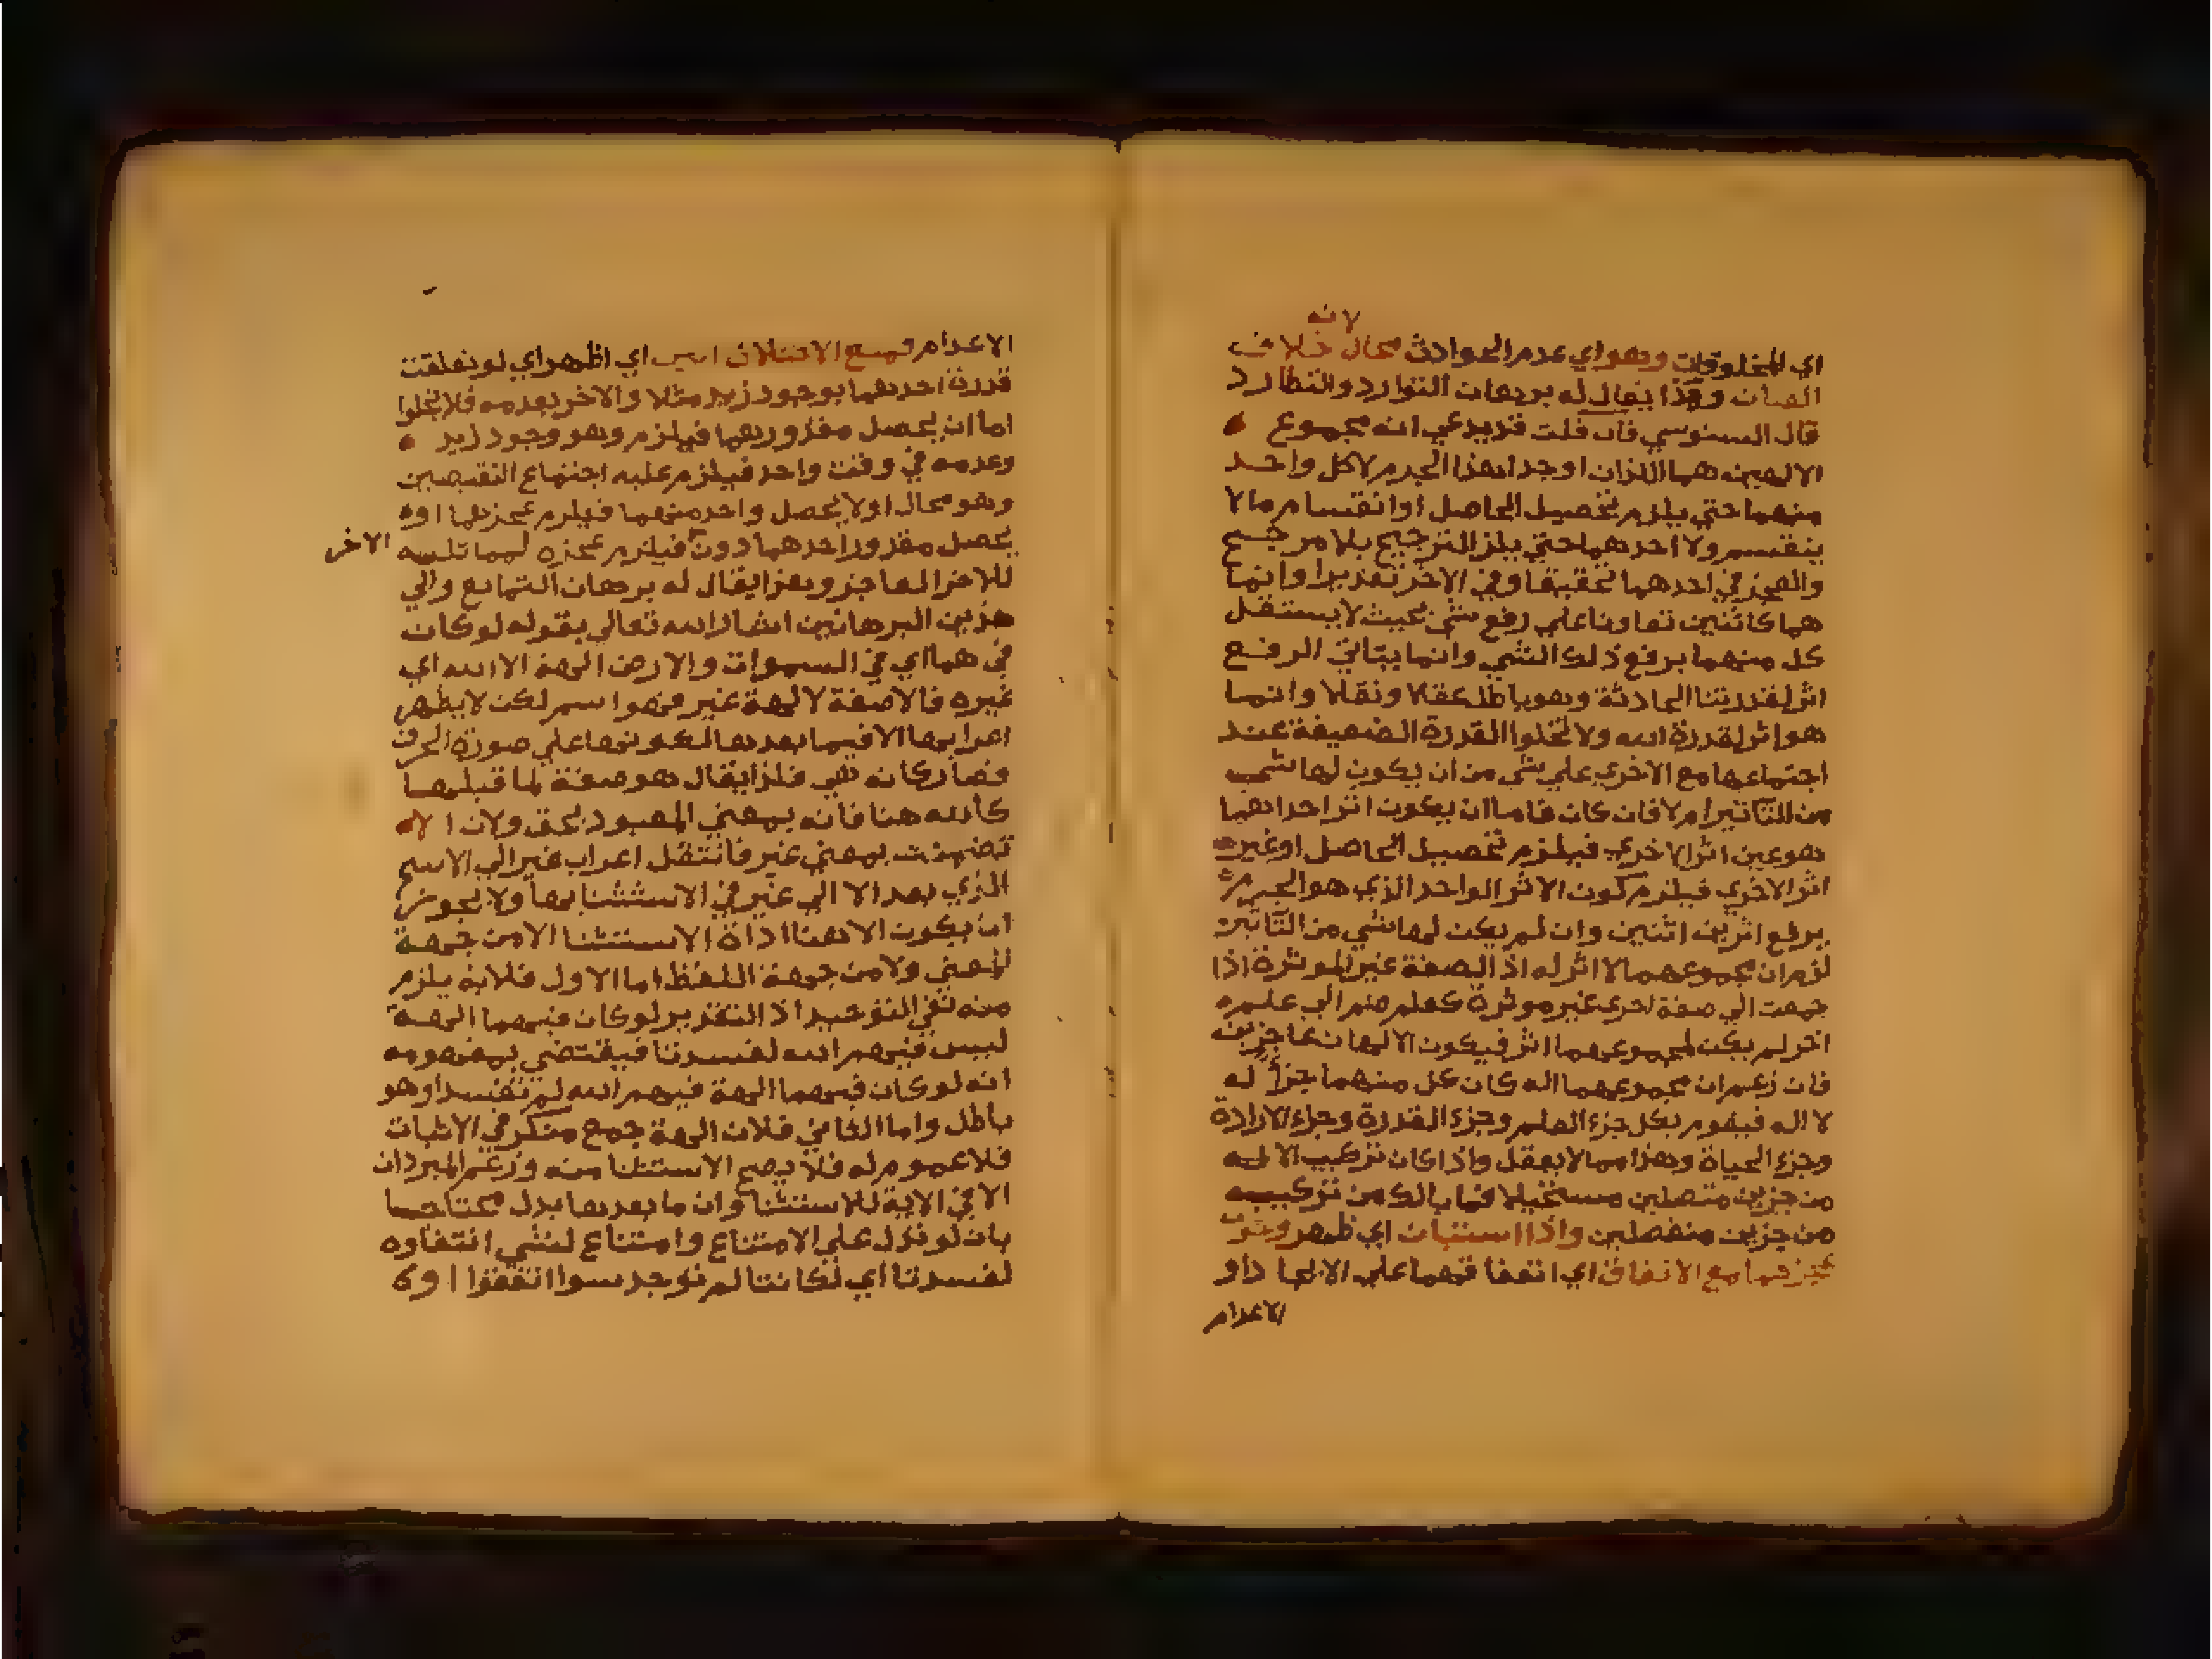 لانه
اي المخلوقات وهو اي عدم الحوادث محال خلاف
العيان وهذا يقال له برهان التوارد والتطارد
قال السنوسي فان قلت قد يدعي انه مجموع
الالهين هما اللذان اوجدا هذا الجرم لا كل واحد
منهما حتي يلزم تحصيل الحاصل او انقسام ما لا
ينقسم ولا احدهما حتي يلز الترجيح بلا مرجح
والعجز في احدهما تحقيقا وفي الاخر تقديرا وانما
هما كاثنين تعاونا علي رفع شي بحيث لا يستقل
كل منهما برفع ذلك الشي وانما يتاتي الرفع
اثر لقدرتنا الحادثة وهو باطل عقلا ونقلا وانما
هو اثر لقدرة الله ولا تخلوا القدرة الضعيفة عند
اجتماعها مع الاخري علي شي من ان يكون لها شي
من التاثير ام لا فان كان فاما ان يكون اثر احداهما
هو عين اثر الاخري فيلزم تحصيل الحاصل او غير
اثر الاخري فيلزم كون الاثر الواحد الذي هو الجرم
يرفع اثرين اثنين وان لم يكن لها شي من التاثير
لزم ان مجموعهما لا اثر له اذ الصفة غير الموثرة اذا
جمعت الي صفة اخري غير موثرة كعلم ضم الي علم
اخر لم يكن لمجموعهما اثر فيكون الالهان عاجزين
فان زعم ان مجموعهما اله كان كل منهما جزأ له
لا اله فيقوم بكل جزء العلم وجزء القدرة وجزء الارادة
وجزء الحياة وهذا مما لا يعقل واذا كان تركيب الاله
من جزين متصلين مستحيلا فما بالك من تركيبه
من جزين منفصلين واذا استبان اي ظهر وجوب
عجزهما مع الاتفاق اي اتفاقهما علي الايجاد او
الاعدام
الاعدام فمع الاختلاف ابين اي اظهر اي لو تعلقت
قدرة احدهما بوجود زيد مثلا والاخر بعدمه فلا يخلوا
اما ان يحصل مقدورهما فيلزم وهو وجود زيد
وعدمه في وقت واحد فيلزم عليه اجتماع النقيضين
وهو محال او لا يحصل واحد منهما فيلزم عجزهما او
يحصل مقدور احدهما دون فيلزم عجزه لمماثلته
الاخر
للاخر العاجز وهذا يقال له برهان التمانع والي
هذين البرهانين اشار الله تعالي بقوله لو كان
فيهما اي في السموات والارض الهة الا الله اي
غيره فالا صفة لالهة غير فهو اسم لكن لا يظهر
اعرابها الا فيما بعدها لكونها علي صورة الحرف
فصار كانه هي فلذا يقال هو صفة لما قبلها
كالله هنا فانه بمعني المعبود بحق ولان الا
تضمنت بمعني غير فانتقل اعراب غير الي الاسم
الذي بعد الا الي غير في الاستثنا بها ولا يجوز
ان يكون الا هنا اداة الاستثنا الا من جهة
المعني ولا من جهة اللفظ اما الاول فلانه يلزم
منه نفي التوحيد اذ التقدير لو كان فيهما الهة
ليس فيهم الله لفسدتا فيقتضي بمفهومه
انه لو كان فيهما الهة فيهم الله لم تفسدا وهو
باطل واما الثاني فلان الهة جمع منكر في الاثبات
فلا عموم له فلا يصح الاستثنا منه وزعم المبرد ان
الا في الاية للاستثنا وان ما بعدها بدل محتاجا
بان لو تدل علي الامتناع وامتناع لشي انتفاوه
لفسدتا اي لكانتا لم توجد سوا اتفقوا او